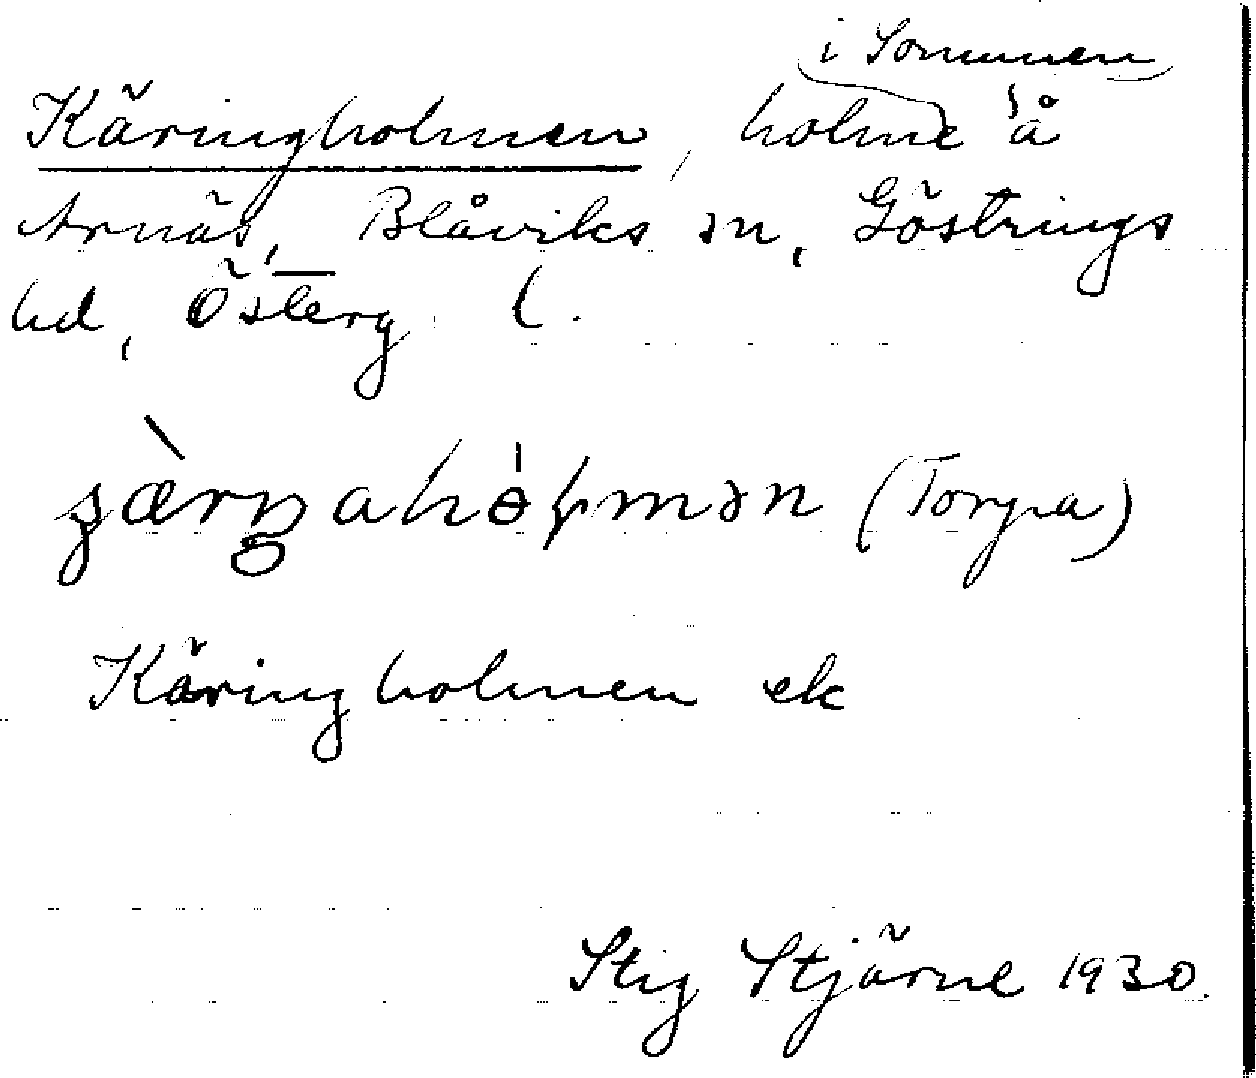 i Sommen
Käringholmen, holme å
Arnäs, Blåviks sn, Göstrings
hd, Österg. l.
(Torpa)
Käringholmen ek
Stig Stjärne 1930.